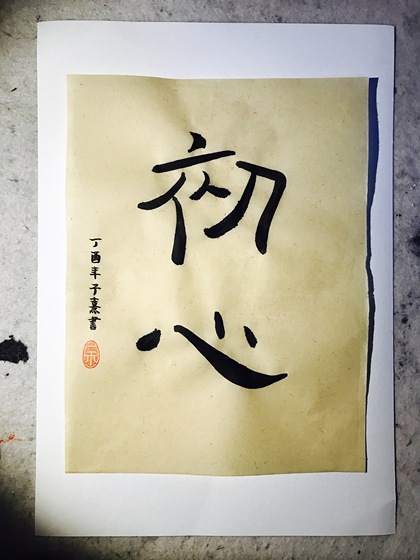 初心
丁酉年子熹書